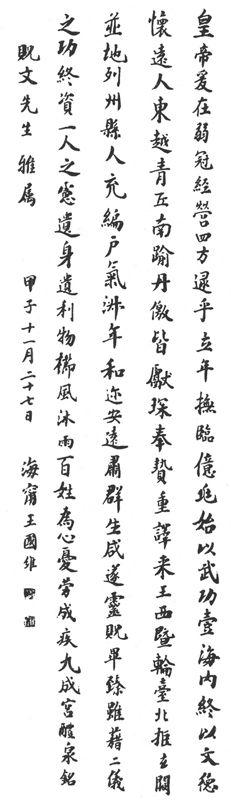 皇帝爰在弱冠經營四方逮乎立年撫臨億兆始以武功壹海內終以文德
懷遠人東越青丘南踰丹徼皆獻琛奉贄重譯来王西暨輪臺北拒玄闕
並地列州縣人充編戶氣淑年和迩安遠肅群生咸遂靈貺畢臻雖藉二儀
之功終資一人之慮遺身遺利物櫛風沐雨百姓為心憂勞成疾九成宮醴泉銘
貺文先生 雅屬 甲子十一月二十七日 海甯王國維